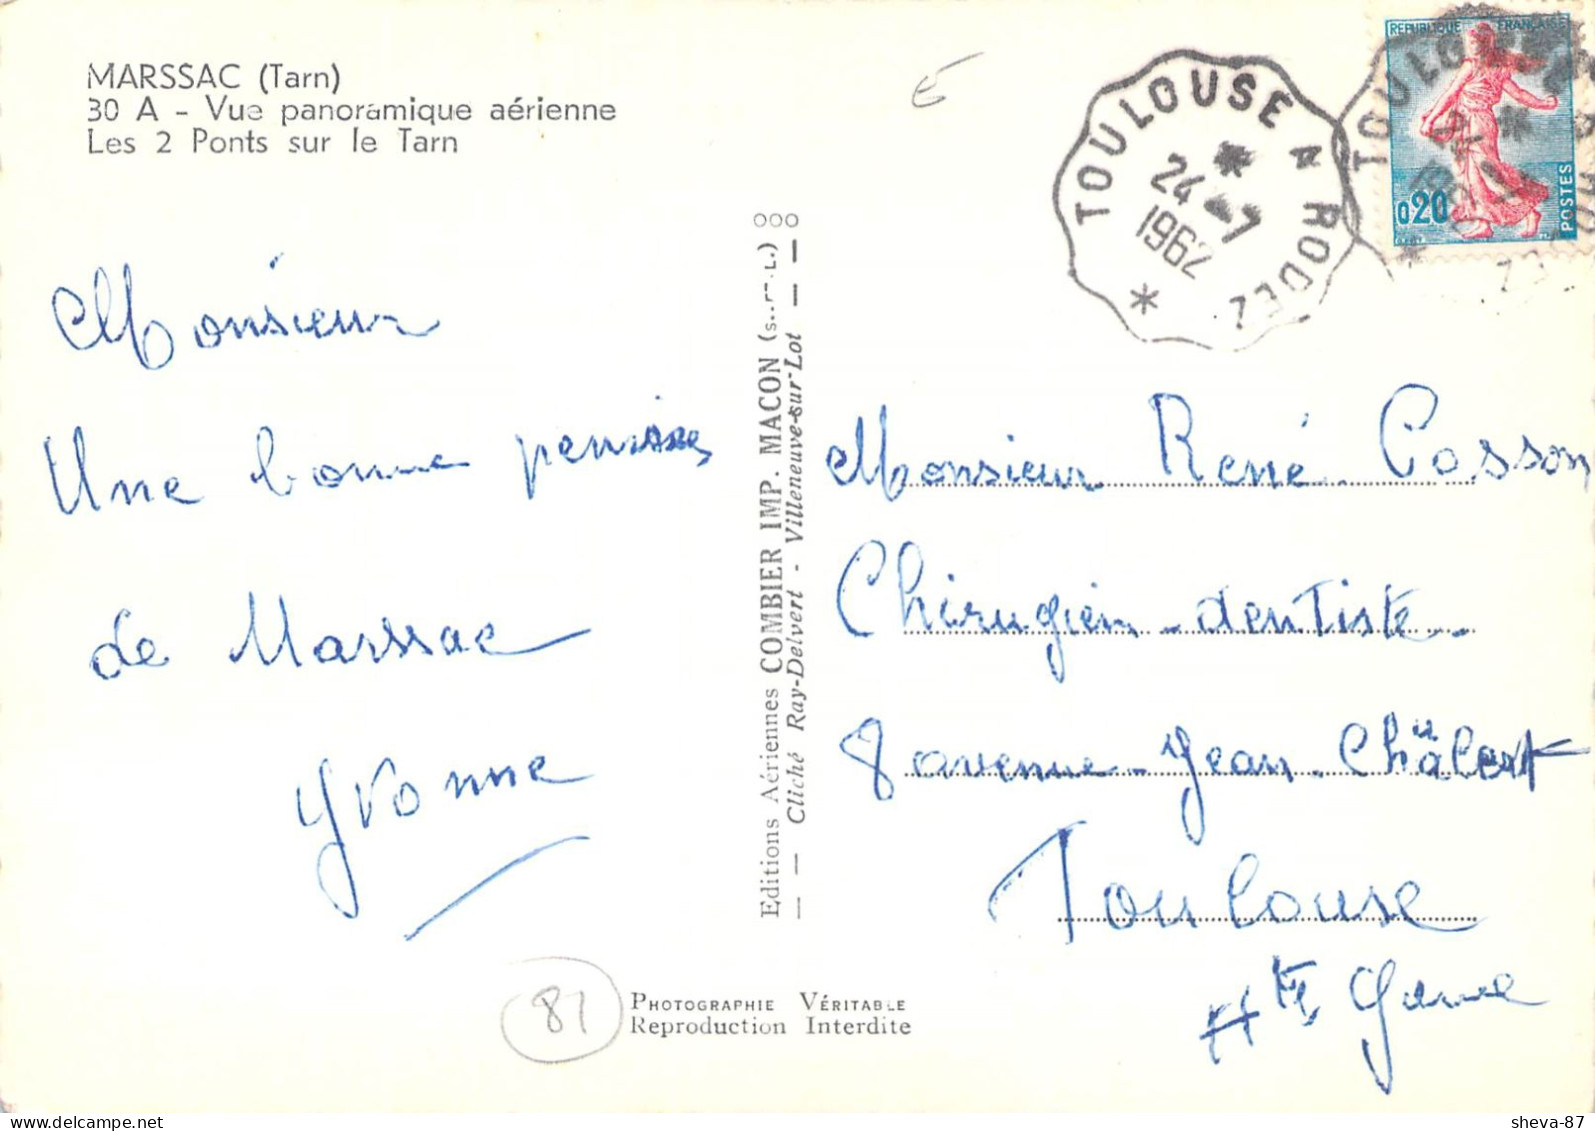 MARSSAC (Tarn)
30 A - Vue panoramique aérienne
Les 2 Ponts sur le Tarn
Monsieur
Une bonne pensée
de Marssac
Yvonne
81
Editions Aériennes COMBIER IMP. MACON (S.-L.)
Cliché Ray-Delvert - Villeneuve-sur-Lot
PHOTOGRAPHIE VÉRITABLE
Reproduction Interdite
TOULOUSE A RODEZ
24-7
1962
REPUBLIQUE FRANÇAISE
0,20
POSTES
TOULOUSE
Monsieur René Cosson
Chirugien-dentiste
8 avenue Jean
Toulouse
Hte Garonne
sheva-87